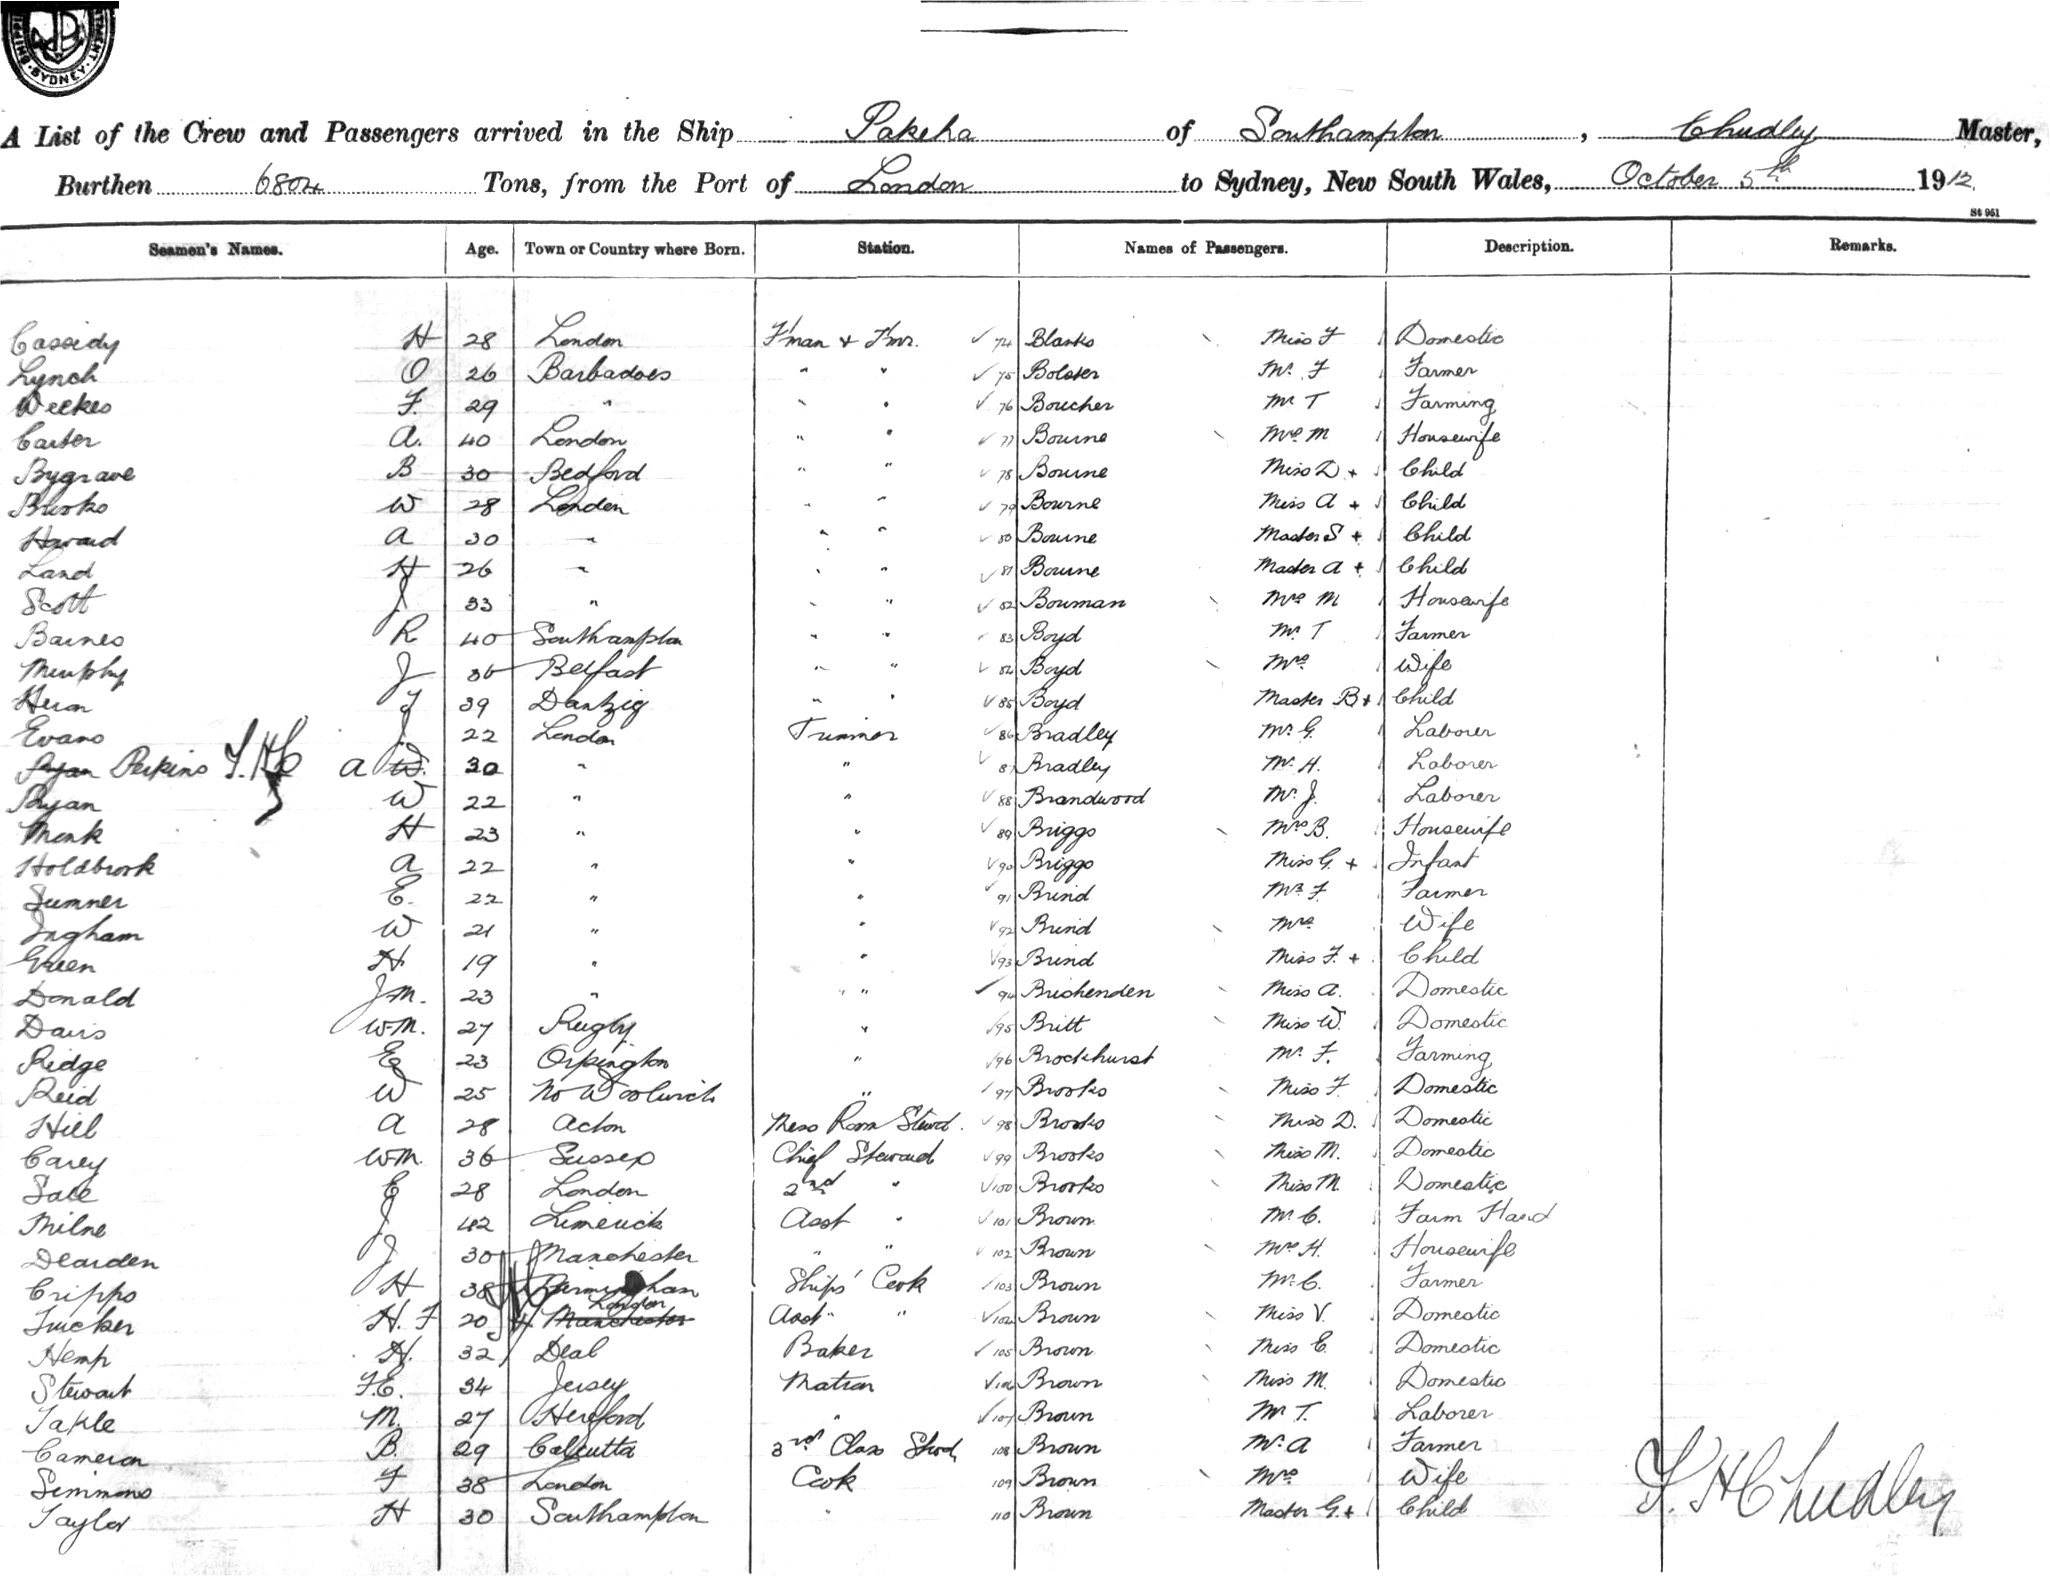 SHIPPING DEPARTMENT · SYDNEY ·
A List of the Crew and Passengers arrived in the Ship Pakeha of Southampton, Chudley Master,
Burthen 6804 Tons, from the Port of London to Sydney, New South Wales, October 5th 1912
St 951
Seamen's Names. Age. Town or Country where Born. Station. Names of Passengers. Description. Remarks.
Cassidy H 28 London F'man & T'mr. 74 Blanks Miss F Domestic
Lynch O 26 Barbadoes " " 75 Bolster Mr. F Farmer
Weekes F. 29 " " " 76 Boucher Mr T Farming
Carter A. 40 London " " 77 Bourne Mrs M Housewife
Bygrave B 30 Bedford " " 78 Bourne Miss D + Child
Brooks W 28 London " " 79 Bourne Miss A + Child
Harvard A 30 " " " 80 Bourne Master S + Child
Land H 26 " " " 81 Bourne Master A + Child
Scott J 33 " " " 82 Bouman Mrs M Housewife
Barnes R 40 Southampton " " 83 Boyd Mr. T Farmer
Murphy J 36 Belfast " " 84 Boyd Mrs Wife
Heron J 39 Dantzig " " 85 Boyd Master B + Child
Evans J. 22 London Trimmer 86 Bradley Mr G. Laborer
Ryan Perkins F.H.C A W. 30 " " 87 Bradley Mr. H. Laborer
Ryan W 22 " " 88 Brandwood Mr J. Laborer
Monk H 23 " " 89 Briggs Mrs B. Housewife
Holdbrook A 22 " " 90 Briggs Miss G + Infant
Sumner E. 22 " " 91 Brind Mr F. Farmer
Ingham W 21 " " 92 Brind Mrs Wife
Green H. 19 " " 93 Brind Miss F. + Child
Donald J.M. 23 " " " 94 Brichenden Miss A. Domestic
Davis W.M. 27 Rugby. " 95 Britt Miss W. Domestic
Ridge E 23 Orpington " 96 Brockhurst Mr F. Farming
Reid W 25 No Woolwich " 97 Brooks Miss F. Domestic
Hill A 28 Acton Mess Room Stewd. 98 Brooks Miss D. Domestic
Carey W.M. 36 Sussex Chief Steward 99 Brooks Miss M. Domestic
Sale E 28 London 2nd " 100 Brooks Miss M. Domestic
Milne J 42 Limerick Asst " 101 Brown Mr C. Farm Hand
Dearden J 30 Manchester " " 102 Brown Mrs H. Housewife
Cripps H 38 Birmingham Ships' Cook 103 Brown Mr C. Farmer
Tucker H. F 20 Manchester London Asst " " 104 Brown Miss V. Domestic
Hemp H. 32 Deal Baker 105 Brown Miss E. Domestic
Stewart F.E. 34 Jersey Matron 106 Brown Miss M. Domestic
Takle M. 27 Hereford " 107 Brown Mr T. Laborer
Cameron B. 29 Calcutta 3rd Class Stwd. 108 Brown Mr. A Farmer
Simmons F 38 London Cook 109 Brown Mrs Wife
Taylor H 30 Southampton " 110 Brown Master G. + Child
F. H Chudley